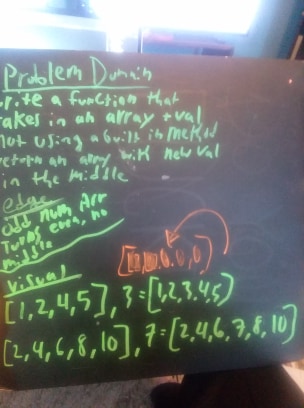 Problem Domain
rite a function that
akes in an array + val
not using a built in method
return an array with new val
in the middle
edge
odd num Arr
turns even, no
middle
visual
[1,2,4,5], 3 = [1,2,3,4,5)
[2,4,6,8,10], 7 = [2,4,6,7,8,10]